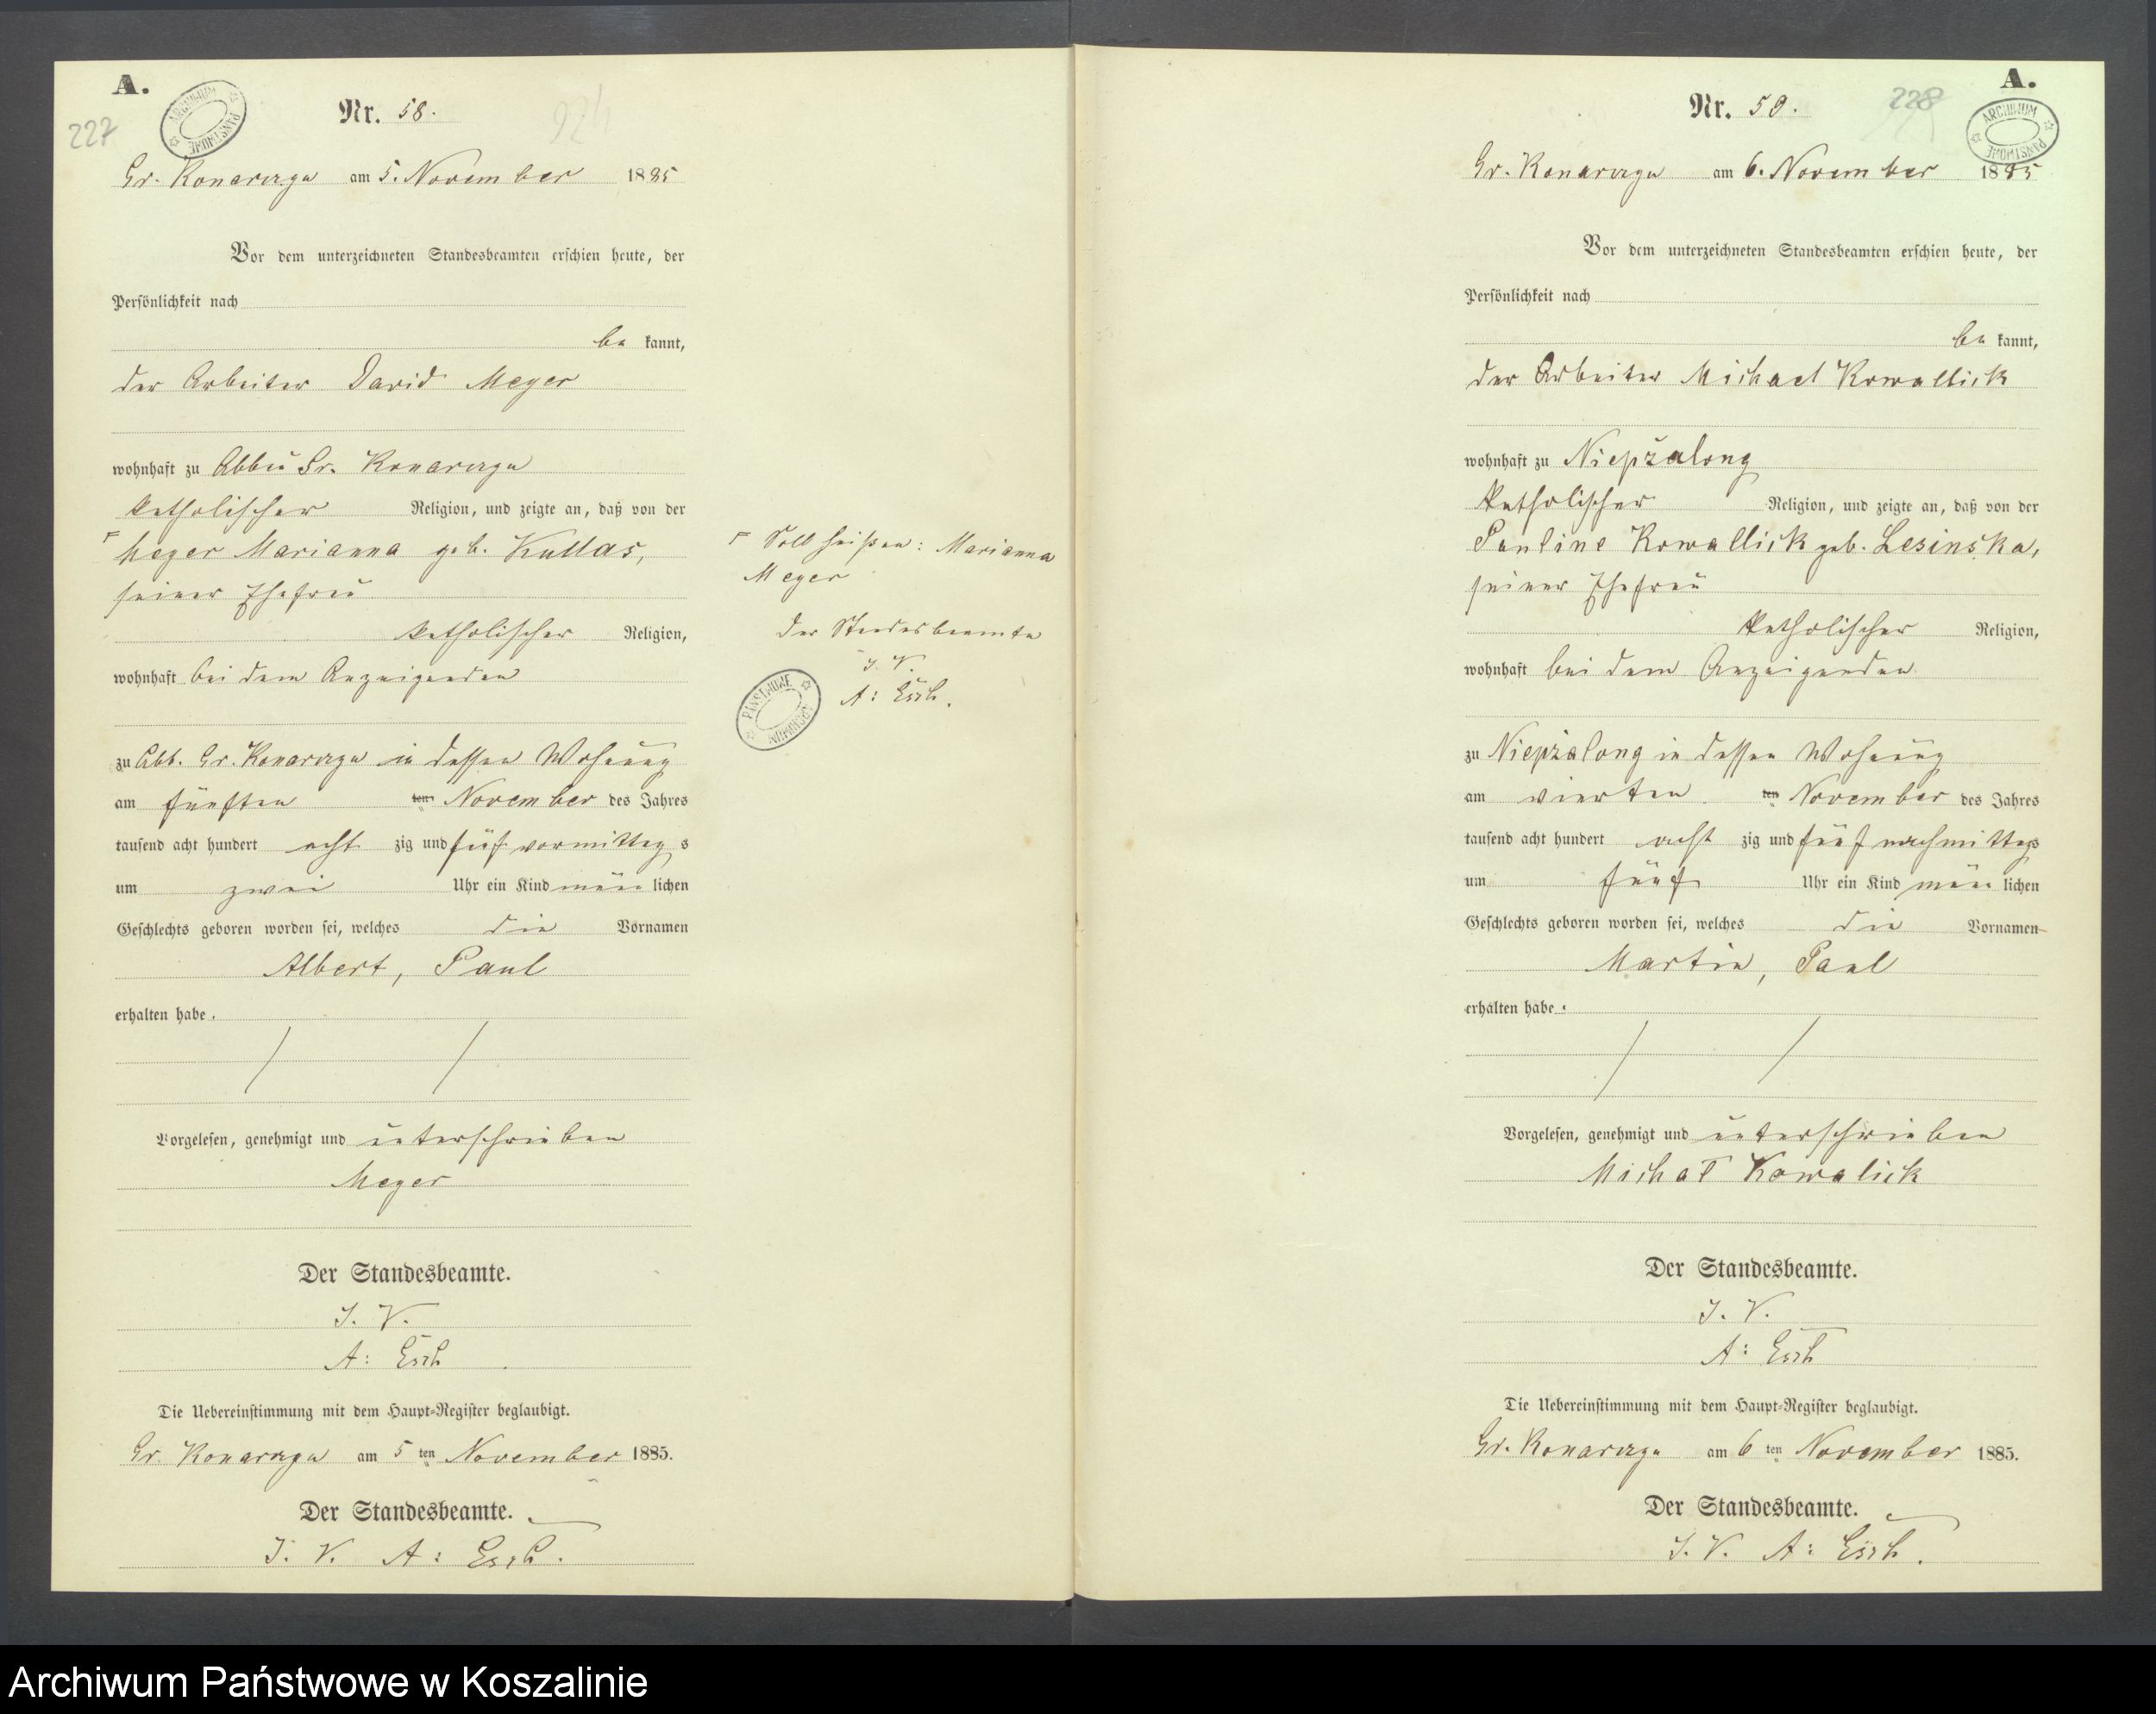 A.
227
ARCHIWUM PAŃSTWOWE
Nr. 58.
Gr. Konarczyn am 5. November 1885
Vor dem unterzeichneten Standesbeamten erschien heute, der
Persönlichkeit nach
be kannt,
der Arbeiter David Meyer
wohnhaft zu Abbau Gr. Konarczyn
katholischer Religion, und zeigte an, daß von der
Meyer Marianna geb. Kullas,
seiner Ehefrau
katholischer Religion,
wohnhaft bei dem Anzeigenden
zu Abb. Gr. Konarczyn in dessen Wohnung
am fünften ten November des Jahres
tausend acht hundert acht zig und fünf vormittag s
um zwei Uhr ein Kind männ lichen
Geschlechts geboren worden sei, welches die Vornamen
Albert, Paul
erhalten habe.
Vorgelesen, genehmigt und unterschrieben
Meyer
Der Standesbeamte.
I. V.
A: Esch
Die Uebereinstimmung mit dem Haupt-Register beglaubigt.
Gr. Konarczyn am 5 ten November 1885.
Der Standesbeamte.
I. V. A: Esch.
Soll heißen: Marianna
Meyer
Der Standesbeamte
I. V.
A: Esch.
PAŃSTWOWE ARCHIWUM
A.
228
ARCHIWUM PAŃSTWOWE
Nr. 59.
Gr. Konarczyn am 6. November 1885
Vor dem unterzeichneten Standesbeamten erschien heute, der
Persönlichkeit nach
be kannt,
der Arbeiter Michael Kowallick
wohnhaft zu Niepżalong
katholischer Religion, und zeigte an, daß von der
Pauline Kowallick geb. Lesinska,
seiner Ehefrau
katholischer Religion,
wohnhaft bei dem Anzeigenden
zu Niepżalong in dessen Wohnung
am vierten ten November des Jahres
tausend acht hundert acht zig und fünf nachmittags
um fünf Uhr ein Kind männ lichen
Geschlechts geboren worden sei, welches die Vornamen
Martin, Paul
erhalten habe.
Vorgelesen, genehmigt und unterschrieben
Michał Kowalick
Der Standesbeamte.
I. V.
A: Esch
Die Uebereinstimmung mit dem Haupt-Register beglaubigt.
Gr. Konarczyn am 6 ten November 1885.
Der Standesbeamte.
I. V. A: Esch.
Archiwum Państwowe w Koszalinie